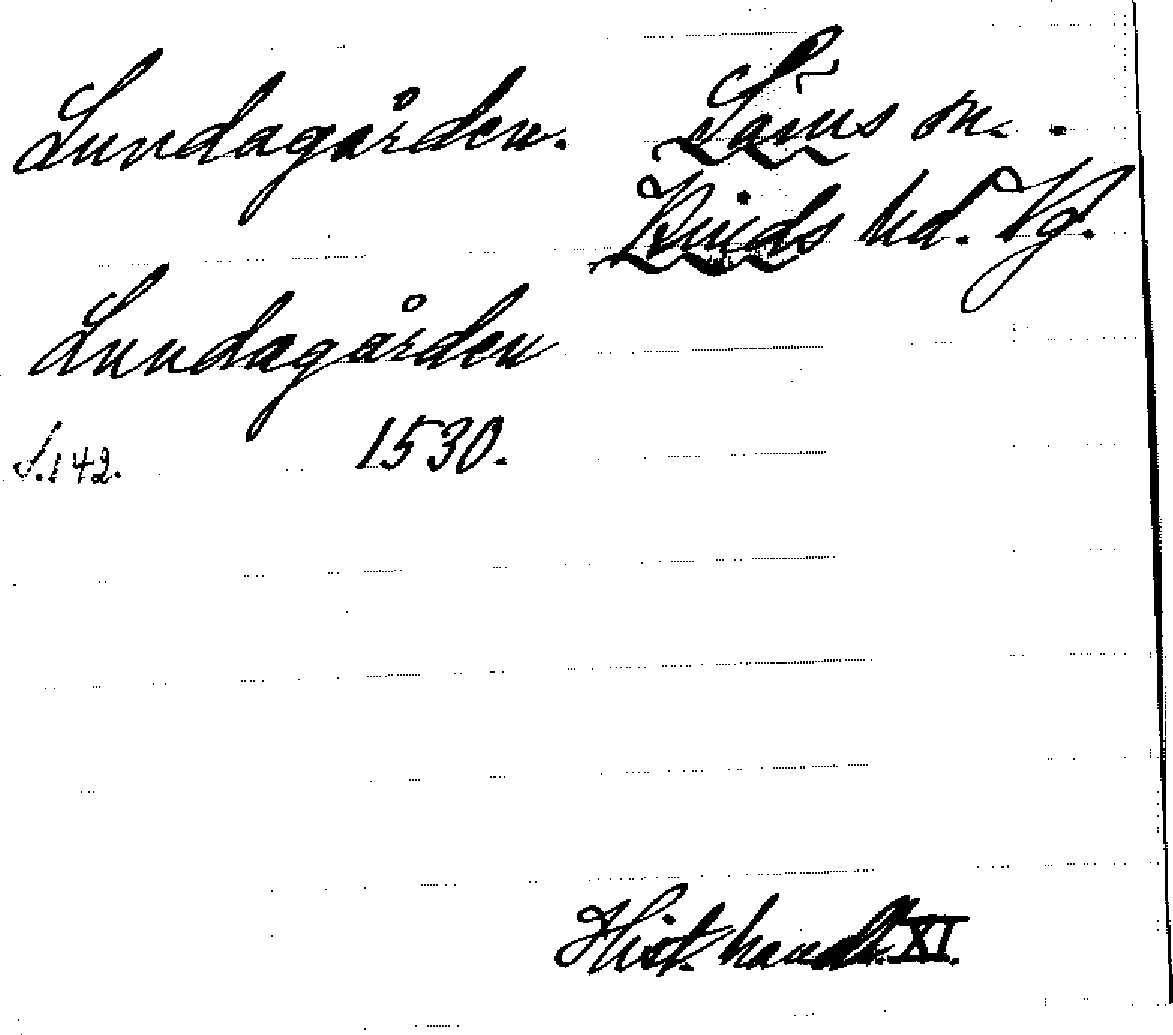 Lundagården. Säms sn.
Kinds hd. Vg.
Lundagården
S.142. 1530.
Hist. handl. XI.